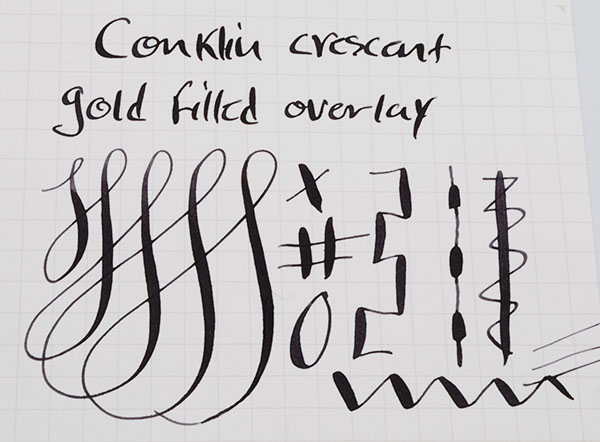 Conklin crescant
gold filled overlay